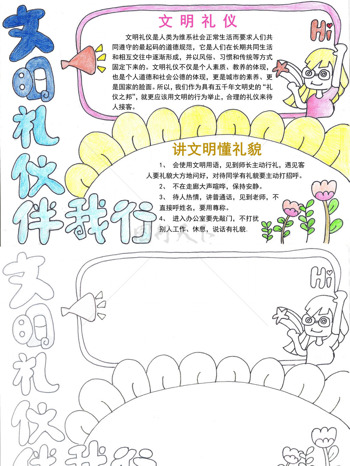 文明礼仪
伴我行
文明礼仪
Hi
文明礼仪是人类为维系社会正常生活而要求人们共
同遵守的最起码的道德规范，它是人们在长期共同生活
和相互交往中逐渐形成，并以风俗、习惯和传统等方式
固定下来的。文明礼仪不仅是个人素质、教养的体现，
也是个人道德和社会公德的体现，更是城市的素养、更
是国家的脸面。所以，我们作为具有五千年文明史的“礼
仪之邦”，就更应该用文明的行为举止，合理的礼仪来待
人接客。
讲文明懂礼貌
1、 会使用文明用语，见到师长主动行礼，遇见客
人要礼貌大方地问好，对待同学有礼貌要主动打招呼。
2、 不在走廊大声喧哗，保持安静。
3、 待人热情，讲普通话，见到老师，不
直接呼姓名，要用尊称。
4、 进入办公室要先敲门，不打扰
别人工作、休息，说话有礼貌.
文明礼仪
伴我行
Hi